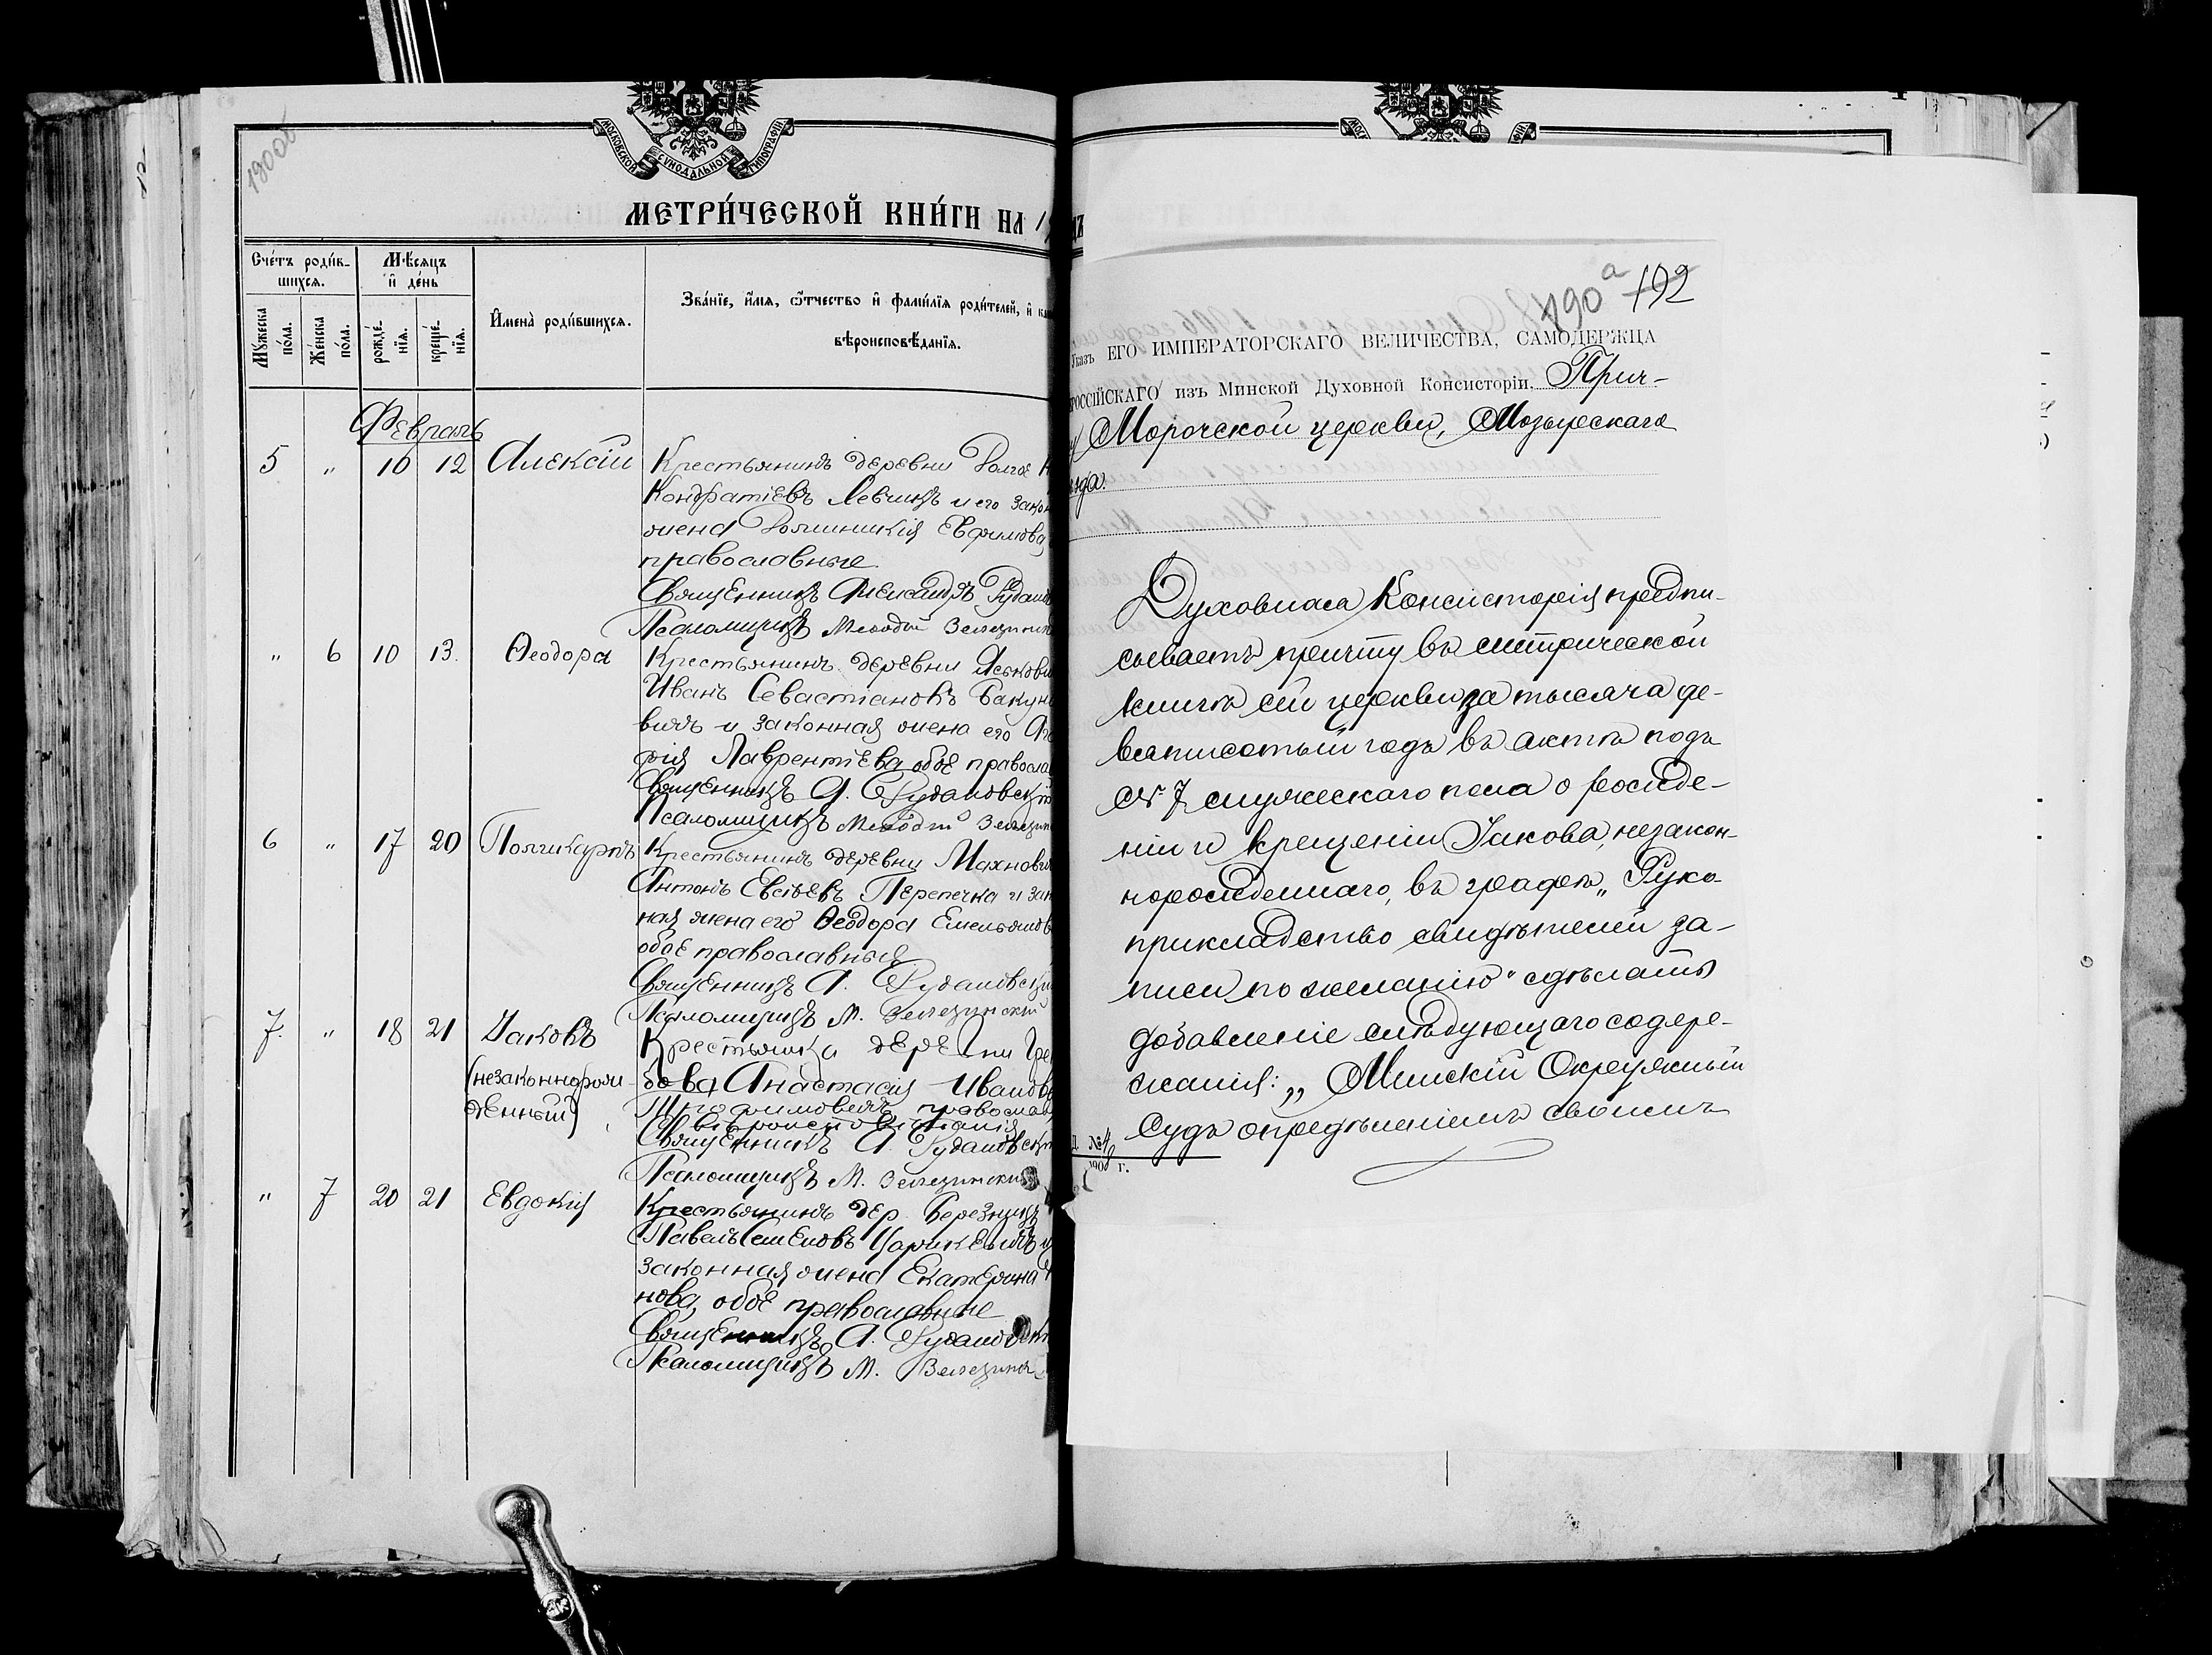 190об
МОСКОВСКОЙ СѴНОДАЛЬНОЙ ТИПОГРАФІИ
МЕТРИ́ЧЕСКОЙ КНИ́ГИ НА 1
Счетъ роди́в-
шихся.
Мѣ́сяцъ
и҆ де́нь
Мꙋ́жеска по́ла.
Же́нска по́ла.
рожде́-
нїѧ.
креще́-
нїѧ.
И҆мена̀ роди́вшихся.
Зва́нїе, и҆́мѧ, ѻ҆́тчество и҆ фами́лїѧ роди́телей, и҆
вѣроисповѣ́данїѧ.
Февраль
5 " 10 12 Алексій Крестьянинъ деревни Долгое
Кондратіевъ Левчикъ и его закон
жена Евфимова
православные.
Священникъ Александръ Рудаков
Псаломщикъ Меѳодій
" 6 10 13. Ѳеодора Крестьянинъ деревни Яськови
Иванъ Севастіановъ Бакун
вичъ и законная жена его
рія Лаврентіева обое правосла
Священникъ А. Рудаковскій
Псаломщикъ Меѳодій
6 " 17 20 Поликарпъ Крестьянинъ деревни Махнович
Антонъ Евсѣевъ Перепечка и зак
ная жена его Ѳеодора Емельянов
обое православныя
Священникъ А. Рудаковскій
Псаломщикъ М.
7. " 18 21 Іаковъ Крестьянка деревни Гре
(незаконнорож- бова Анастасія Иванов
денный) православ
вѣроисповѣданія
Священникъ А. Рудаковскій
Псаломщикъ М.
" 7 20 21 Евдокія Крестьянинъ дер. Березницъ
Павелъ Семеновъ Царикевичъ и
законная жена Екатерина
нова, обое православные
Священникъ А. Рудаков
Псаломщикъ М.
190а 192
Указъ ЕГО ИМПЕРАТОРСКАГО ВЕЛИЧЕСТВА, САМОДЕРЖЦА
РОССІЙСКАГО изъ Минской Духовной Консисторіи, Прич-
Морочской церкви, Мозырскаго
ѣзда.
Духовная Консисторія предпи-
сываетъ причту въ метрической
книгѣ сей церкви за тысяча де-
вятисотый годъ въ актѣ подъ
№ 7 мужескаго пола о рожде-
ніи и крещеніи Іакова, незакон-
норожденнаго, въ графѣ „Руко-
прикладство свидѣтелей за-
писи по желанію" сдѣлать
добавленіе слѣдующаго содер-
жанія: „Минскій Окружный
Судъ опредѣленіемъ своимъ
№ 4
190 г.